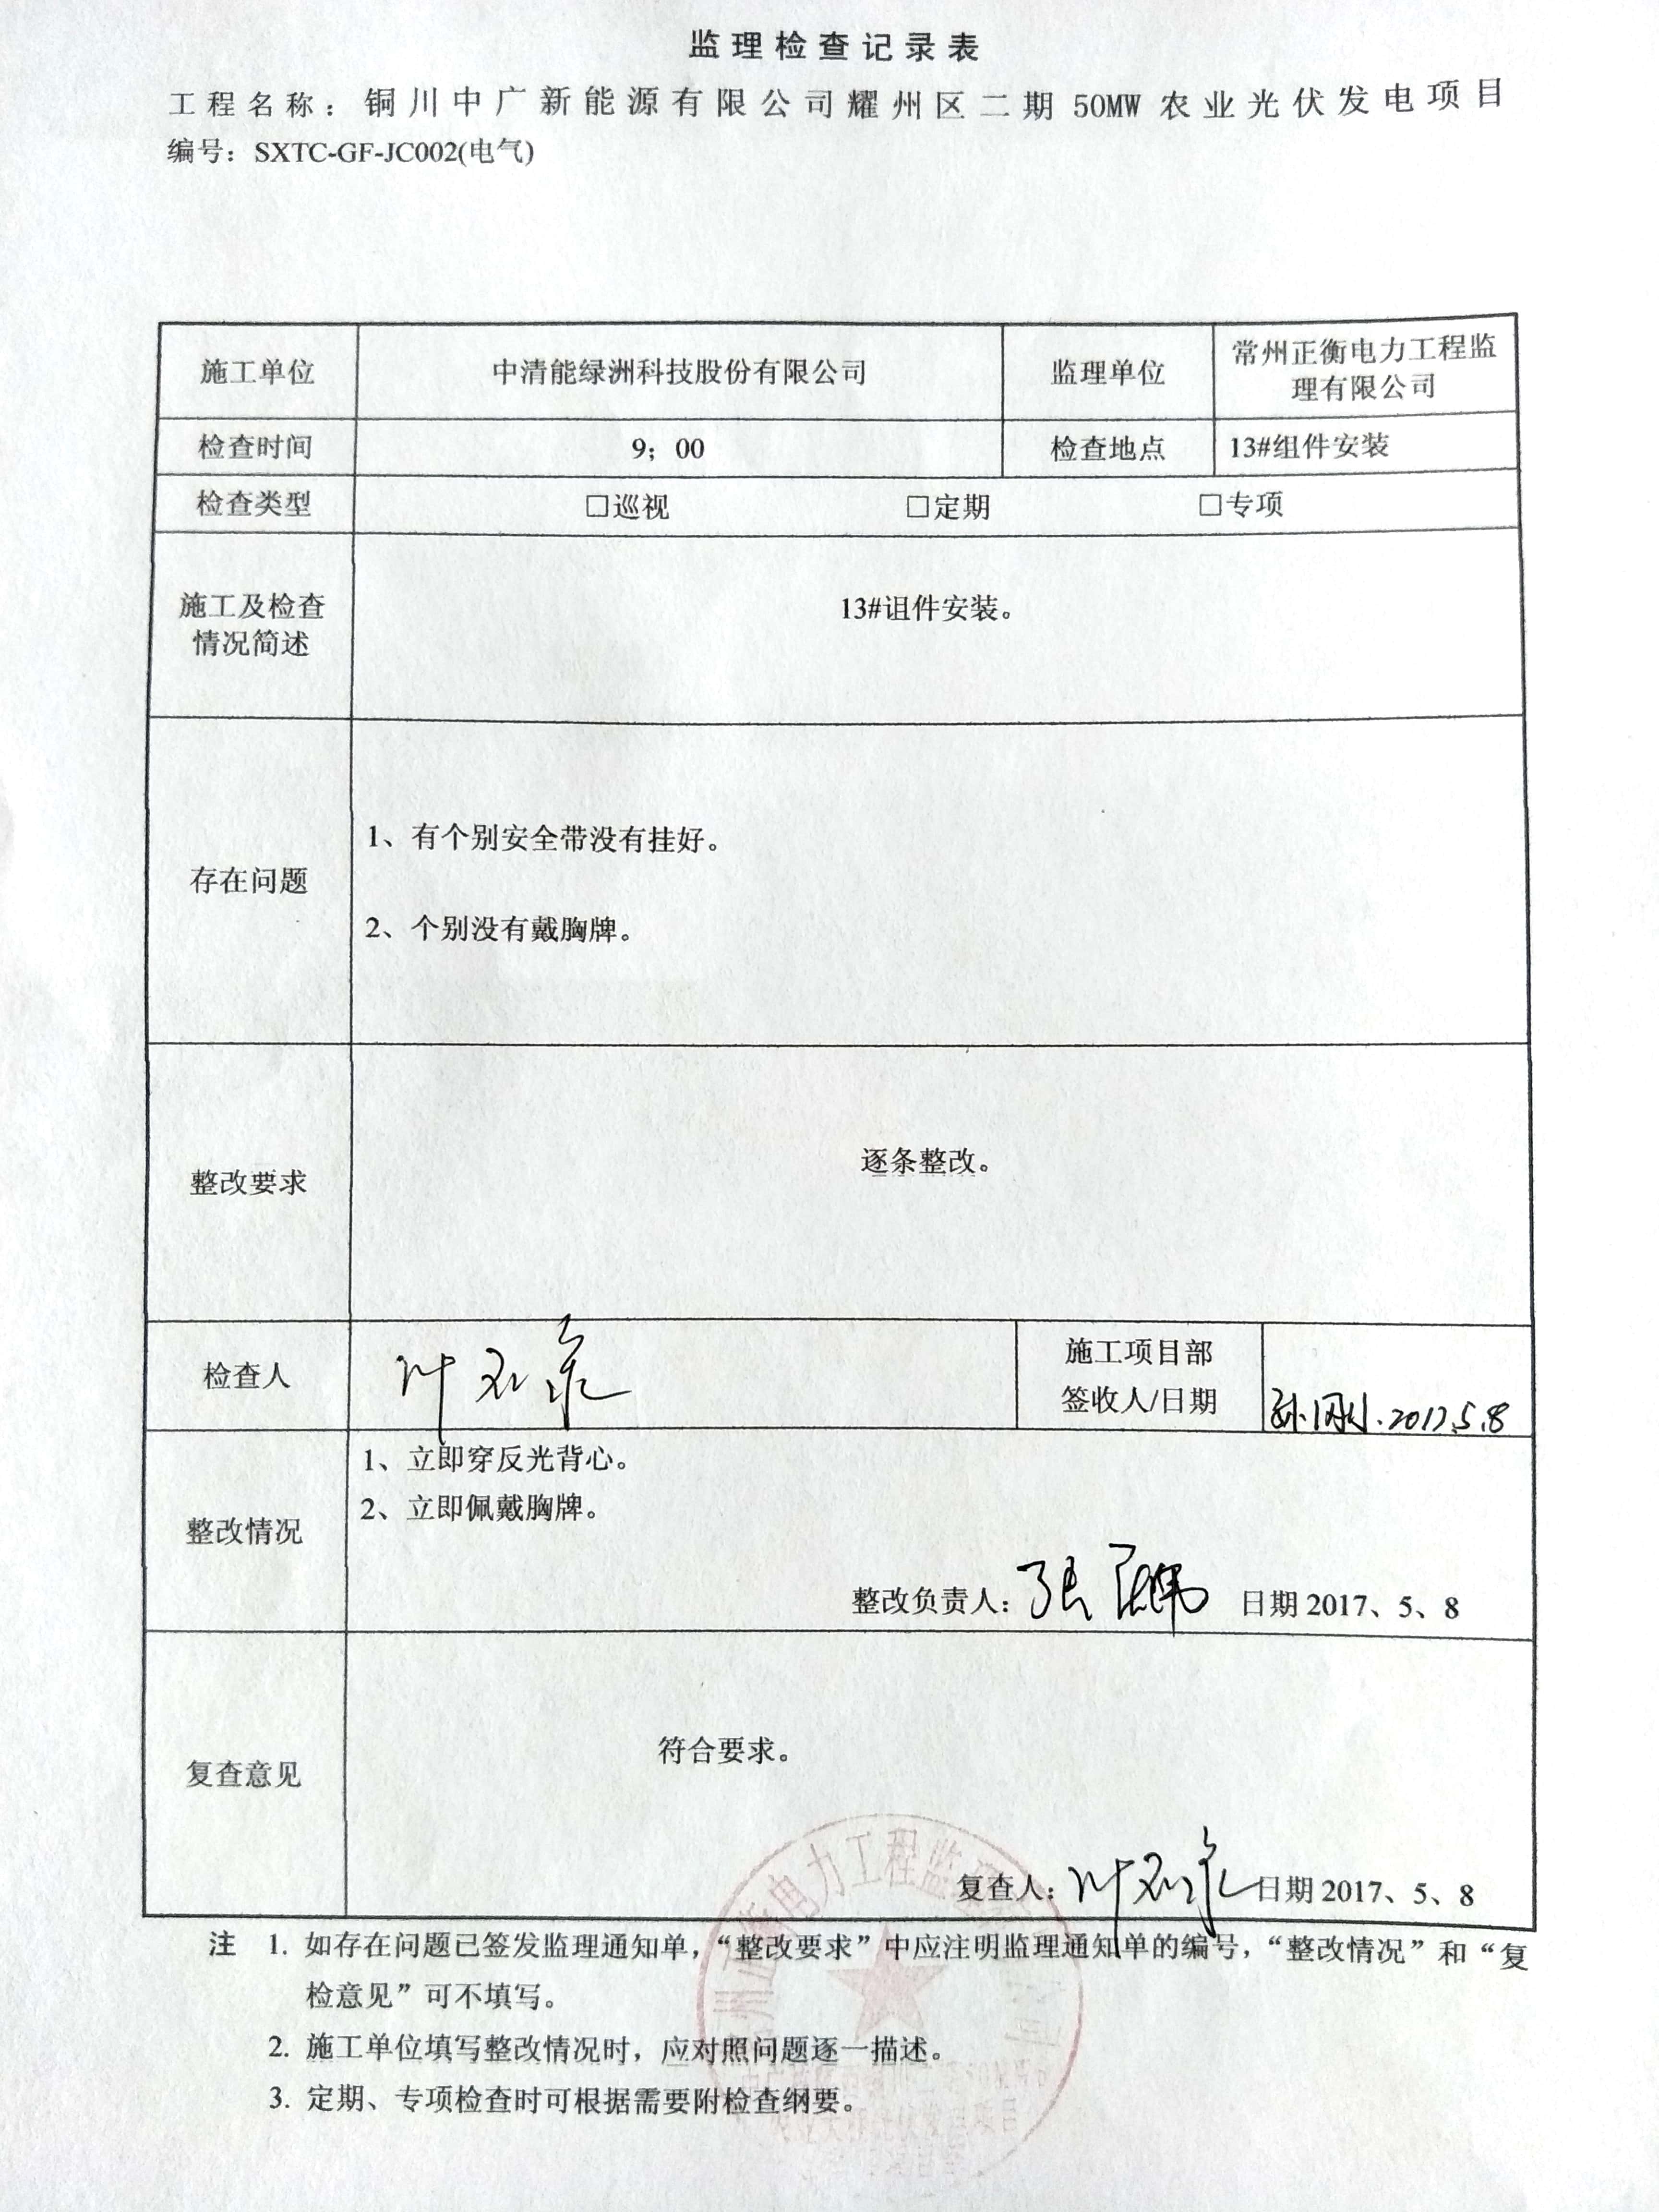 监理检查记录表
工程名称：铜川中广新能源有限公司耀州区二期 50MW 农业光伏发电项目
编号：SXTC-GF-JC002(电气)
施工单位 中清能绿洲科技股份有限公司 监理单位 常州正衡电力工程监
理有限公司
检查时间 9；00 检查地点 13#组件安装
检查类型 □巡视 □定期 □专项
施工及检查
情况简述
13#诅件安装。
存在问题
1、有个别安全带没有挂好。
2、个别没有戴胸牌。
整改要求
逐条整改。
检查人
施工项目部
签收人/日期
2017.5.8
整改情况
1、立即穿反光背心。
2、立即佩戴胸牌。
整改负责人： 日期 2017、5、8
复查意见
符合要求。
复查人： 日期 2017、5、8
注 1. 如存在问题已签发监理通知单，“整改要求”中应注明监理通知单的编号，“整改情况”和“复
检意见”可不填写。
2. 施工单位填写整改情况时，应对照问题逐一描述。
3. 定期、专项检查时可根据需要附检查纲要。